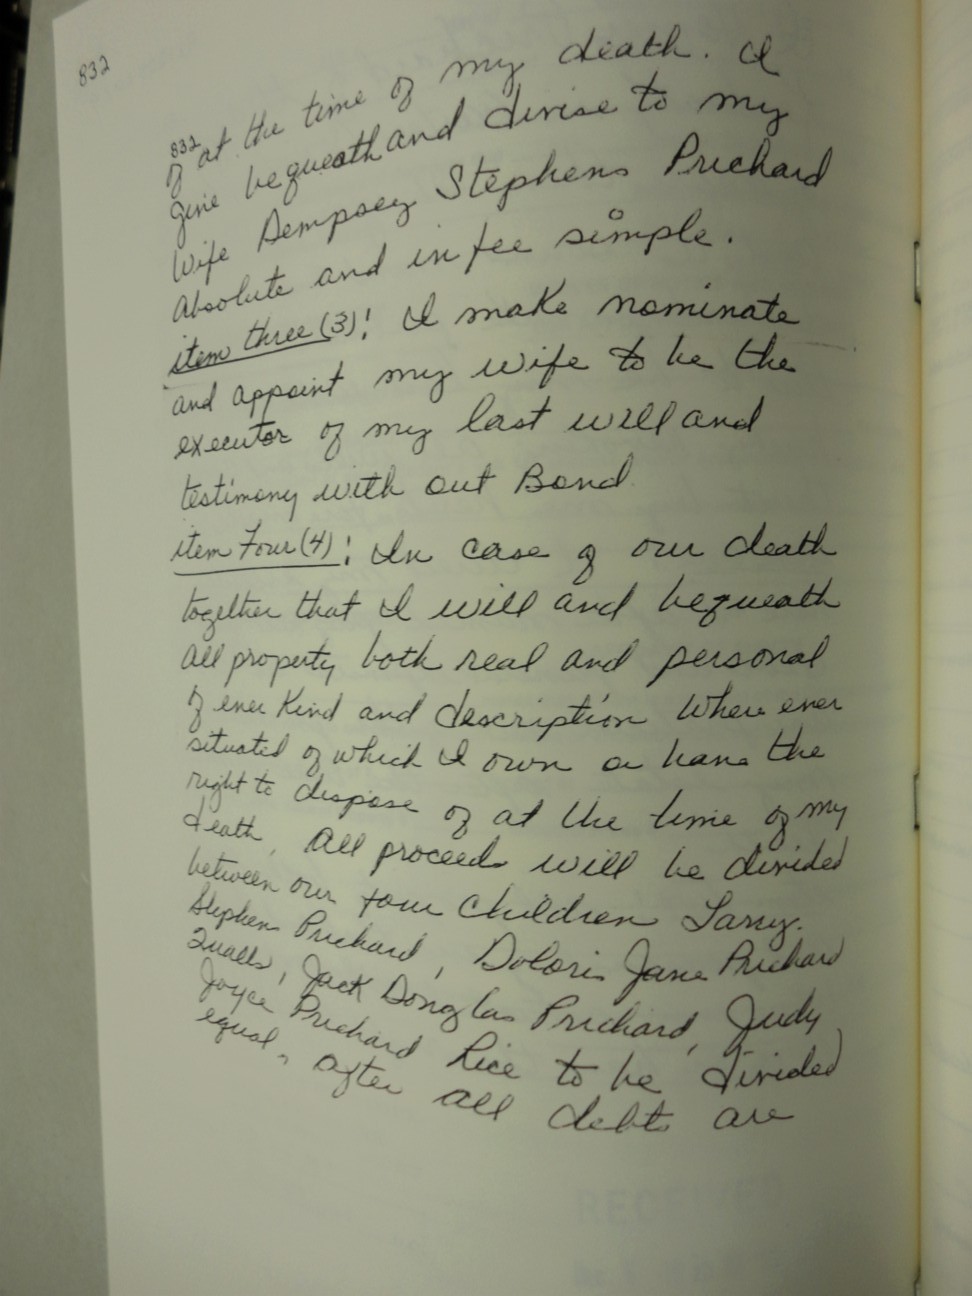 832
832
of at the time of my death. I
give bequeath and divise to my
wife Dempsey Stephens Prichard
Absolute and in fee simple.
item three (3): I make nominate
and appoint my wife to be the
executor of my last will and
testimony with out Bond
item Four (4): In case of our death
together that I will and bequeath
all property both real and personal
of ever Kind and description Where ever
situated of which I own or have the
right to dispose of at the time of my
death, All proceeds will be divided
between our four Children Larry
Stephens Prichard, Doloris Jane Prichard
Qualls, Jack Douglas Prichard, Judy
Joyce Prichard Rice to be divided
equal, after all debts are
RECEIVED